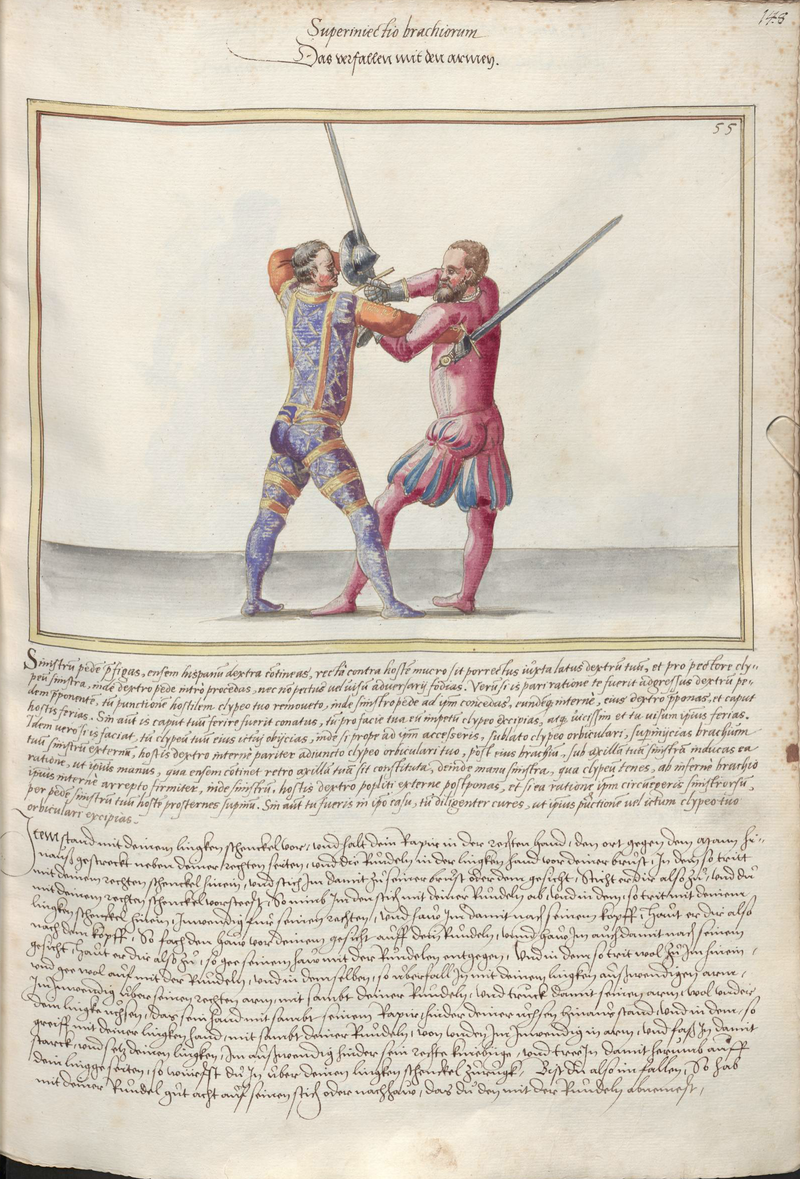 148
Superiniectio brachiorum
Das verfallen mit den armen.
55
Sinistrū pedē p̄figas, ensem hispanū dextra cōtineas, rectā contra hostē mucro sit porrectus iuxta latus dextrū tuū, et pro pectore cly-
peū sinistra, inde dextro pede intrò procedas, nec nō pectus vel visū adversarij fodias. Verū si is pari ratione te fuerit adgressus dextrū pe-
dem p̄ponente, tū punctionē hostilem clypeo tuo removeto, inde sinistro pede ad ip̄m concedas, eundēq, internè, eius dextro p̄ponas, et caput
hostis ferias. Sin aūt is caput tuū ferire fuerit conatus, tū pro facie tua eū impetū clypeo excipias, atq, vicissim et tu visum ipsius ferias.
Idem vero si is faciat, tū clypeū tuū eius ictui obijcias, inde si prope ad ip̄m accesseris, sublato clypeo orbiculari, supinijcias brachium
tuū sinistrū externū, hostis dextro internè pariter adiuncto clypeo orbiculari tuo, post eius brachiū, sub axillā tuā sinistrā inducas ea
ratione, ut ipsius manus, qua ensem cōtinet retro axillā tuā sit constituta, deinde manu sinistra, qua clypeū tenes, ab infernè brachio
ipsius internè arrepto firmiter, inde sinistrū, hostis dextro popliti externè postponas, et si ea ratione ip̄m circūegeris sinistrorsū,
per pedē sinistrū tuū hostē prosternes supinū. Sin aūt tu fueris in ip̄o casu, tū diligenter cures, ut ipsius pūctione vel ictum clypeo tuo
orbiculari excipias.
Item stand mit deinem lingken schenckel vor, vnd halt dein Rapir in der rechten hand, den ort gegen dem mann hi-
nauß gestreckt neben deiner rechten seiten, vnd die Rundeln in der lingken hand vor deiner brust, In dem so tritt
mit deinem rechten schenckel hinein, vnd stich Im damit zu seiner brust oder dem gesicht, Sticht er dir also zu, vnd du
mit deinem rechten schenckel vorsteest, So nimb Im den stich mit deiner Rundeln ab, vnd in dem, so trit mit deinem
lingken schenckel hinein, Inwendig für seinen rechten, vnd haw Im damit nach seinem kopff, Haut er dir also
nach dem kopff, So fach den haw vor deinem gesicht auff dein Rundeln, vnnd haw Im auch damit nach seinem
gesicht, Haut er dir also zu, so gee seinem haw mit der Rundelen entgegen, Vnd in dem so trit wol zu Im hinein,
vnd gee wol auf mit der Rundeln, vnd in demselben, so vberfall In mit deinem lingken außwendigen arm,
Im Inwendig über seinen rechten arm, mit sambt deiner Rundeln, vnd truck damit seinen arm, wol vnder
dein lingke vchsen, das sein hand mit sambt seinem Rapir, hinder deiner vchsen hinaus stand, vnd in dem, so
greiff mit deiner lingken hand, mit sambt deiner Rundeln, von vnden Im Inwendig in arm, vnd faß In damit
starck, vnd setz deinen lingken, Im außwendig hinder sein rechte kniebüge, vnd tree In damit herumb auff
dein lingge seiten, so wirffst du In über deinen lingken schenckel zurugk, Bist du also im fallen, So hab
mit deiner Rundel gut acht auff seinen stich oder nachhaw, das du den mit der Rundeln abnemest,